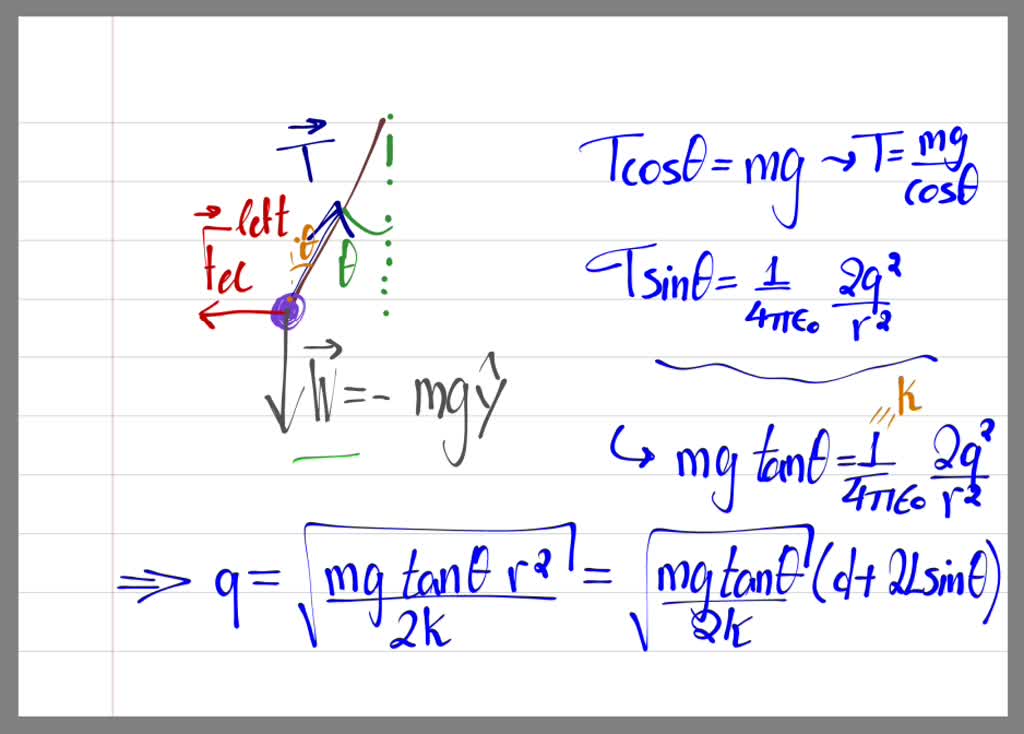 T⃗
F⃗el left
θ
θ
W⃗ = - mgŷ
Tcosθ = mg → T = mg/cosθ
Tsinθ = 1/4πϵ₀ 2q²/r²
k
↳ mg tanθ = 1/4πϵ₀ 2q²/r²
⇒ q = √(mg tanθ r²/2k) = √(mg tanθ/2k) (d + 2Lsinθ)